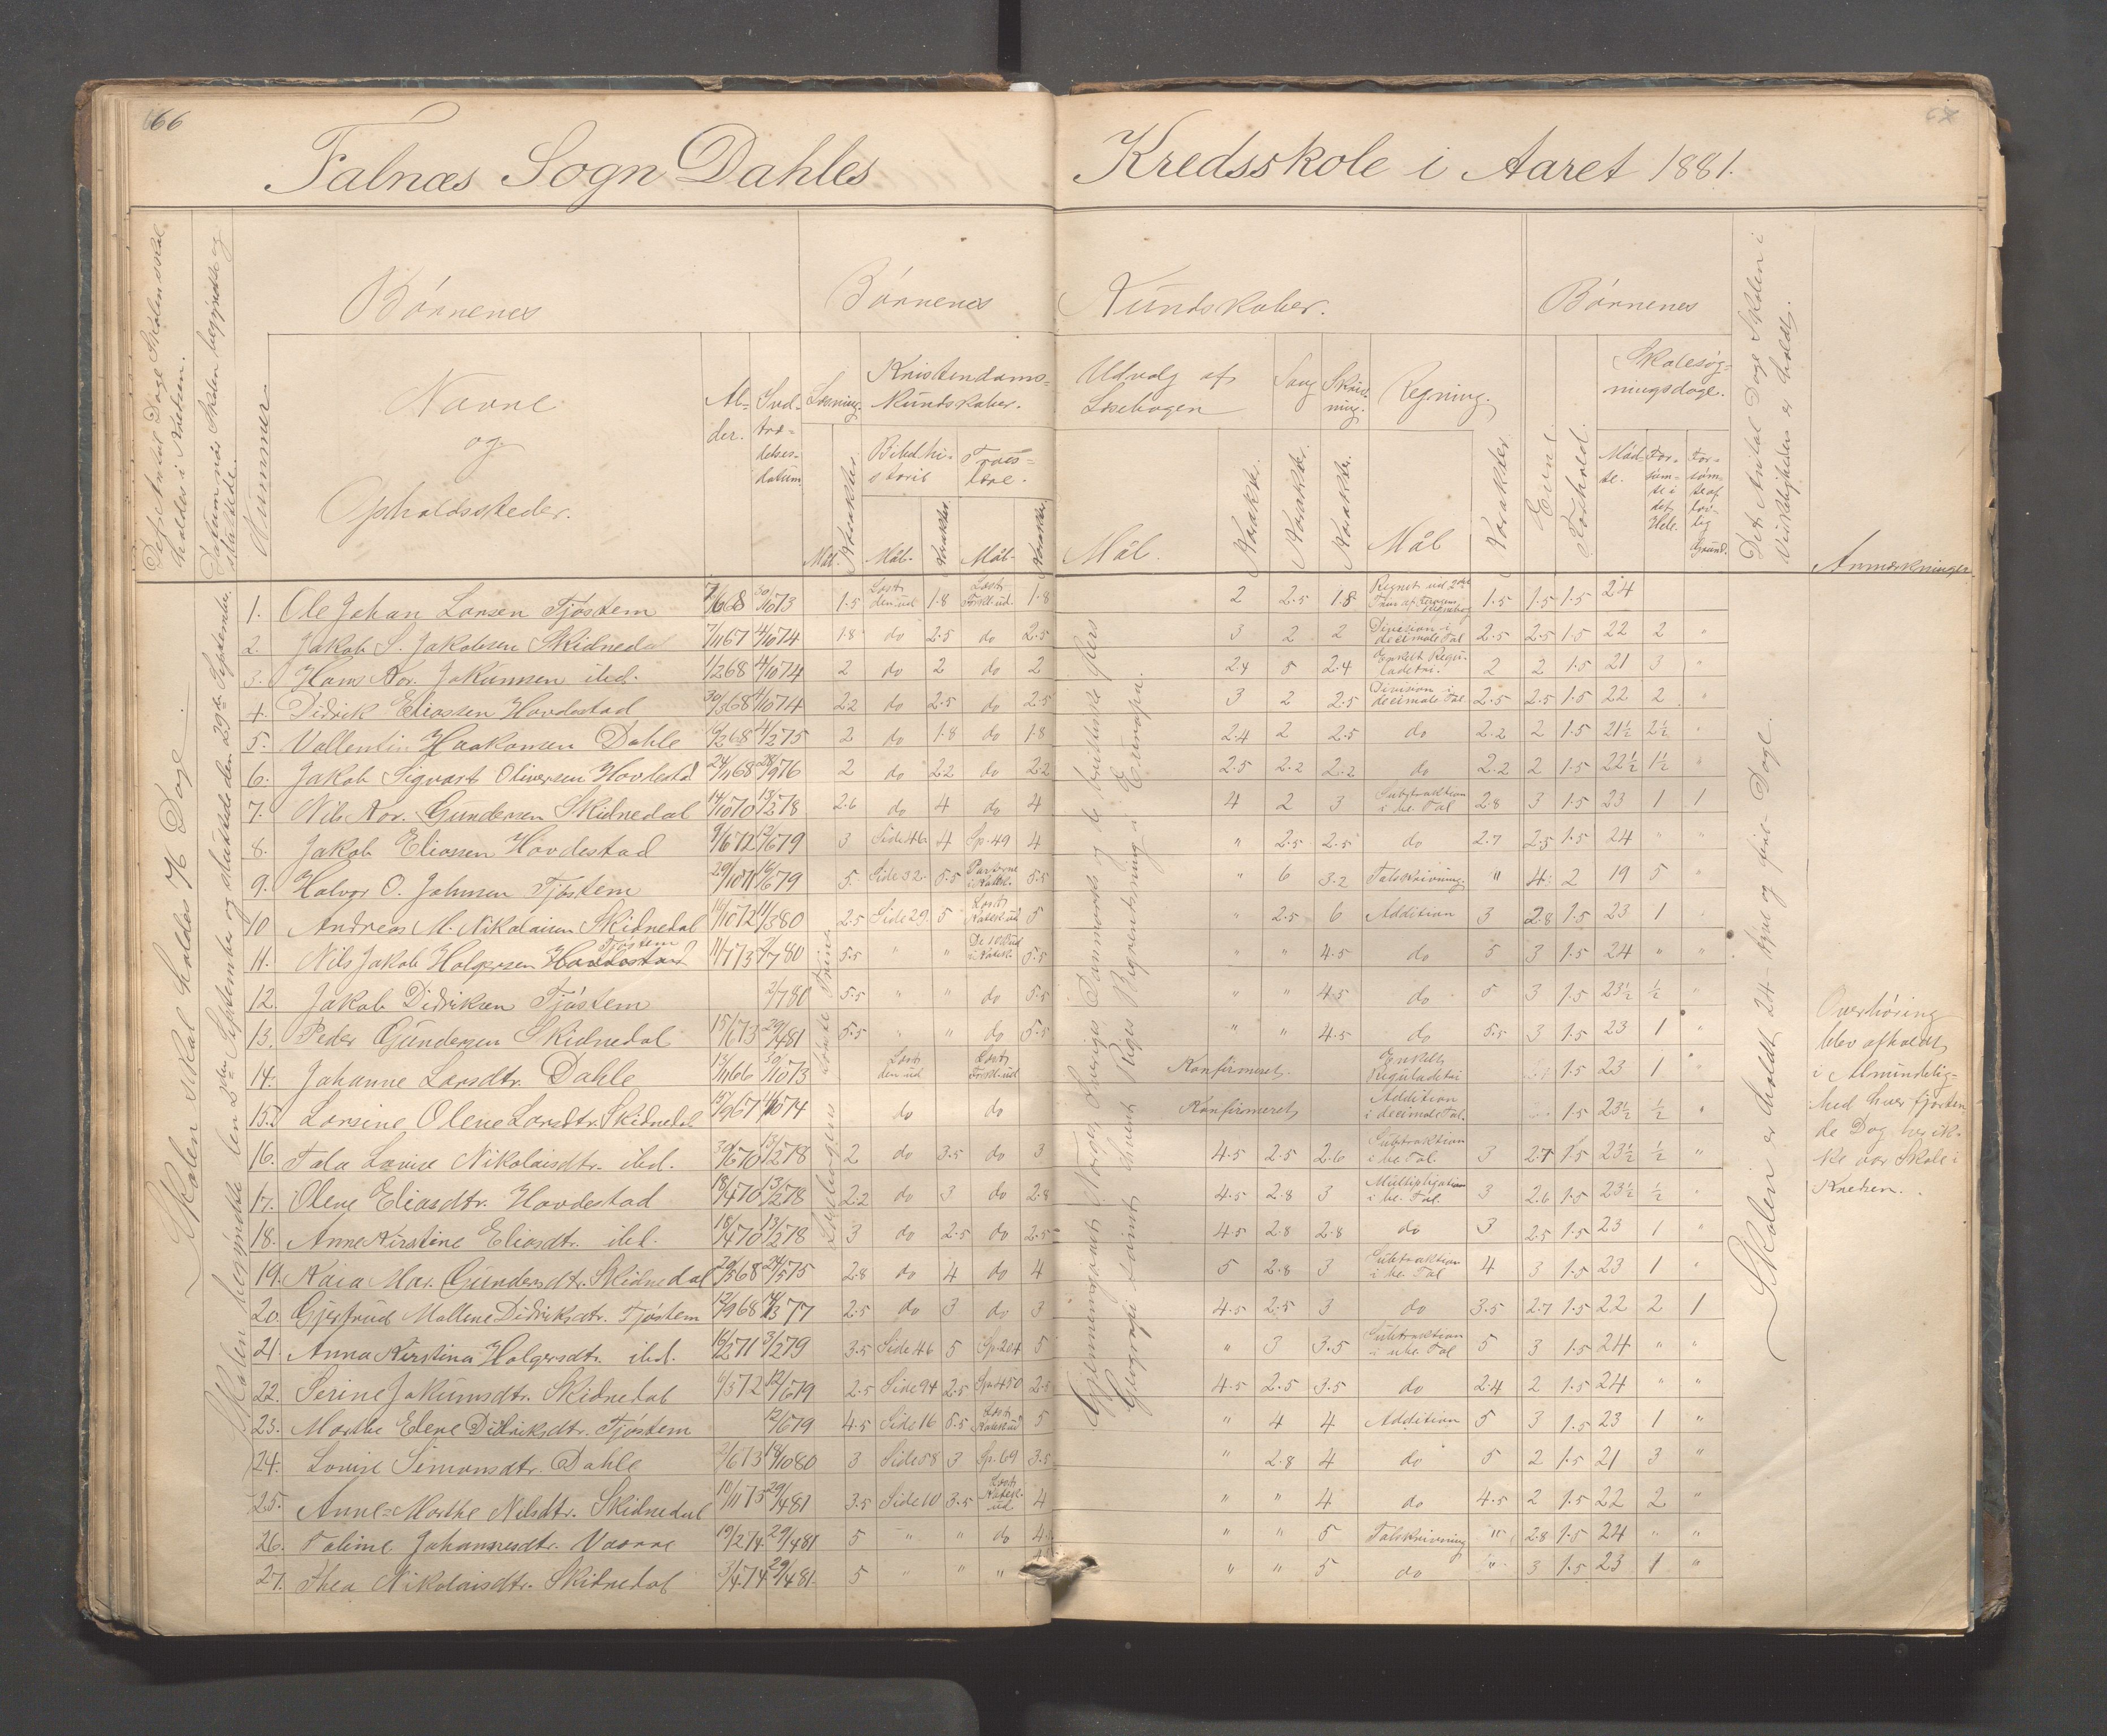 66
Falnæs Sogn Dahles Kredsskole i Aaret 1881.
Det Antal Dage Skolen skal holdes i Kredsen.
Datum naar Skolen begyndte og sluttede.
Nummer
Børnenes
Navne
og
Opholdssteder.
Al-
der.
Ind-
træ-
delses-
datum
Børnenes Kundskaber.
Læsning.
Mål. Karakter.
Kristendoms-
Kundskaber.
Bibelhi-
storie
Mål. Karakter.
Troes-
lære.
Mål. Karakter.
Udvalg af
Læsebogen
Mål. Karakter.
Sang
Karakter.
Skriv-
ning.
Karakter.
Regning.
Mål Karakter.
Børnenes
Evne.
Forhold.
Skolesøg-
ningsdage.
Mød-
te.
For-
søm-
te i
det
Hele.
For-
søm-
te af
lov-
lig
Grund.
Det Antal Dage Skolen i
Virkeligheden er holdt.
Anmærkninger.
Skolen skal holdes Dage.
Skolen begyndte den 2den September og sluttede den 29de September.
1. Ole Johan Larsen Tjøstem 7/6 68 30/10 73 1.5 Læst den ud 1.8 Læst Forkl. ud. 1.8 2 2.5 1.8 1.5 1.5 1.5 24
2. Jakob S. Jakobsen Skidnedal 7/11 67 4/10 74 1.8 do 2.5 do 2.5 3 2 2 Division i decimale Tal 2.5 2.5 1.5 22 2 "
3. Hans Kor. Jakumsen ibd. 1/2 68 4/10 74 2 do 2 do 2 2.4 5 2.4 Enkelt Regu-ladetri. 2 2 1.5 21 3 "
4. Didrik Eliassen Hovdestad 30/3 68 4/10 74 2.2 do 2.5 do 2.5 3 2 2.5 Division i decimale Tal. 2.5 2.5 1.5 22 2 "
5. Vallentin Haakonsen Dahle 6/2 68 4/2 75 2 do 1.8 do 1.8 2.4 2 2.5 do 2.2 2 1.5 21½ 2½ "
6. Jakob Sigvart Oliversen Hovdestad 24/11 68 28/9 76 2 do 2.2 do 2.2 2.5 2.2 2.2 do 2.2 2 1.5 22½ 1½ "
7. Nils Kor. Gundersen Skidnedal 14/10 70 13/2 78 2.6 do 4 do 4 4 2 3 Subtraktion i be. Tal 2.8 3 1.5 23 1 1
8. Jakob Eliassen Hovdestad 9/6 72 12/6 79 3 Side 46 4 Sp. 49 4 " 2.5 2.5 do 2.7 2.5 1.5 24 " "
9. Halvor O. Johnsen Tjøstem 29/10 71 16/6 79 5. Side 32. 5.5 5.5 " 6 3.2 Talskrivning. " 4 2 19 5 "
10 Andreas M. Nikolaisen Skidnedal 16/10 72 11/3 80 2.5 Side 29. 5 Læst Katek. ud 5 " 2.5 6 Addition 3 2.8 1.5 23 1 "
11. Nils Jakob Holgersen Tjøstem 11/7 73 2/7 80 5.5 " " De 10 Bud i Katek. 5.5 " " 4.5 do 5 3 1.5 24 " "
12. Jakob Didriksen Tjøstem 2/7 80 5.5 " " do 5.5 " " 4.5 do 5 3 1.5 23½ ½ "
13. Peder Gundersen Skidnedal 15/6 73 29/4 81 5.5 " " do 5.5 " " 4.5 do 5.5 3 1.5 23 1 "
14. Johanne Larsdtr. Dahle 13/11 66 30/10 73 Læst den ud Læst Forkl. ud Konfirmeret. Enkelt Reguladetri 1.5 23 1 "
15. Larsine Olene Larsdtr. Skidnedal 15/9 67 4/10 74 do do Konfirmeret Addition i decimale Tal. 1.5 23½ ½ "
16. Tala Lovise Nikolaisdtr. ibd. 30/6 70 13/2 78 2 do 3.5 do 3 4.5 2.5 2.6 Subtraktion i be. Tal. 3 2.7 1.5 23½ ½ "
17. Olene Eliasdtr. Hovdestad 18/4 70 13/2 78 2.2 do 3 do 2.8 4.5 2.8 3 Multiplikation i be. Tal. 3 2.6 1.5 23½ ½ "
18. Anne Kirstine Eliasdtr. ibd. 18/4 70 13/2 78 3 do 2.5 do 2.5 4.5 2.8 2.8 do 3 2.5 1.5 23 1 "
19. Kaia Mar. Gundersdtr. Skidnedal 20/5 68 24/5 75 2.8 do 4 do 4 5 2.8 3 Subtraktion i be. Tal 4 3 1.5 23 1 "
20. Gjertrud Mallene Didriksdtr. Tjøstem 12/9 68 14/3 77 2.5 do 3 do 3 4.5 2.5 3 do 3.5 2.7 1.5 22 2 1
21. Anna Kirstina Holgersdtr. ibd. 16/2 71 3/2 79 3.5 Side 46 5 Sp. 204 5 " 3 3.5 Subtraktion i ube. Tal 5 3 1.5 24 " "
22. Serine Jakumsdtr. Skidnedal 6/5 72 12/6 79 2.5 Side 94 2.5 Sp. 450 2.5 4.5 2.5 3.5 do 2.4 2 1.5 24 " "
23. Marthe Elene Didriksdtr. Tjøstem 12/6 79 4.5 Side 16 5.5 Læst Katek. ud 5 " 4 4 Addition 5 3 1.5 23 1 "
24. Lovise Simonsdtr. Dahle 2/6 73 18/10 80 3 Side 58 3 Sp. 69 3.5 " 2.8 4 do 5 2 1.5 21 3 "
25. Anne-Marthe Nilsdtr. Skidnedal 10/11 73 29/4 81 3.5 Side 10 3.5 Læst Katek. ud 4 " " 4 do 4.5 2 1.5 22 2 "
26. Taline Johannesdtr. Vaarne 19/2 74 29/4 81 5 " " do " " 5 Talskrivning " 2.8 1.5 24 " "
27. Thea Nikolaisdtr. Skidnedal 3/4 74 29/4 81. 5 " " " " " 5 do " 3 1.5 23 1 "
Gjennemgaaet Norges, Sveriges, Danmarks og de brittiske Øers
Geografi samt hvert Riges Begrendsning i Europa.
Skolen er holdt 24 - tyve og fire - Dage.
Overhøring
blev afholdt
i Almindelig-
hed hver fjorten
de Dag her ik-
ke var Skole i
Kredsen.